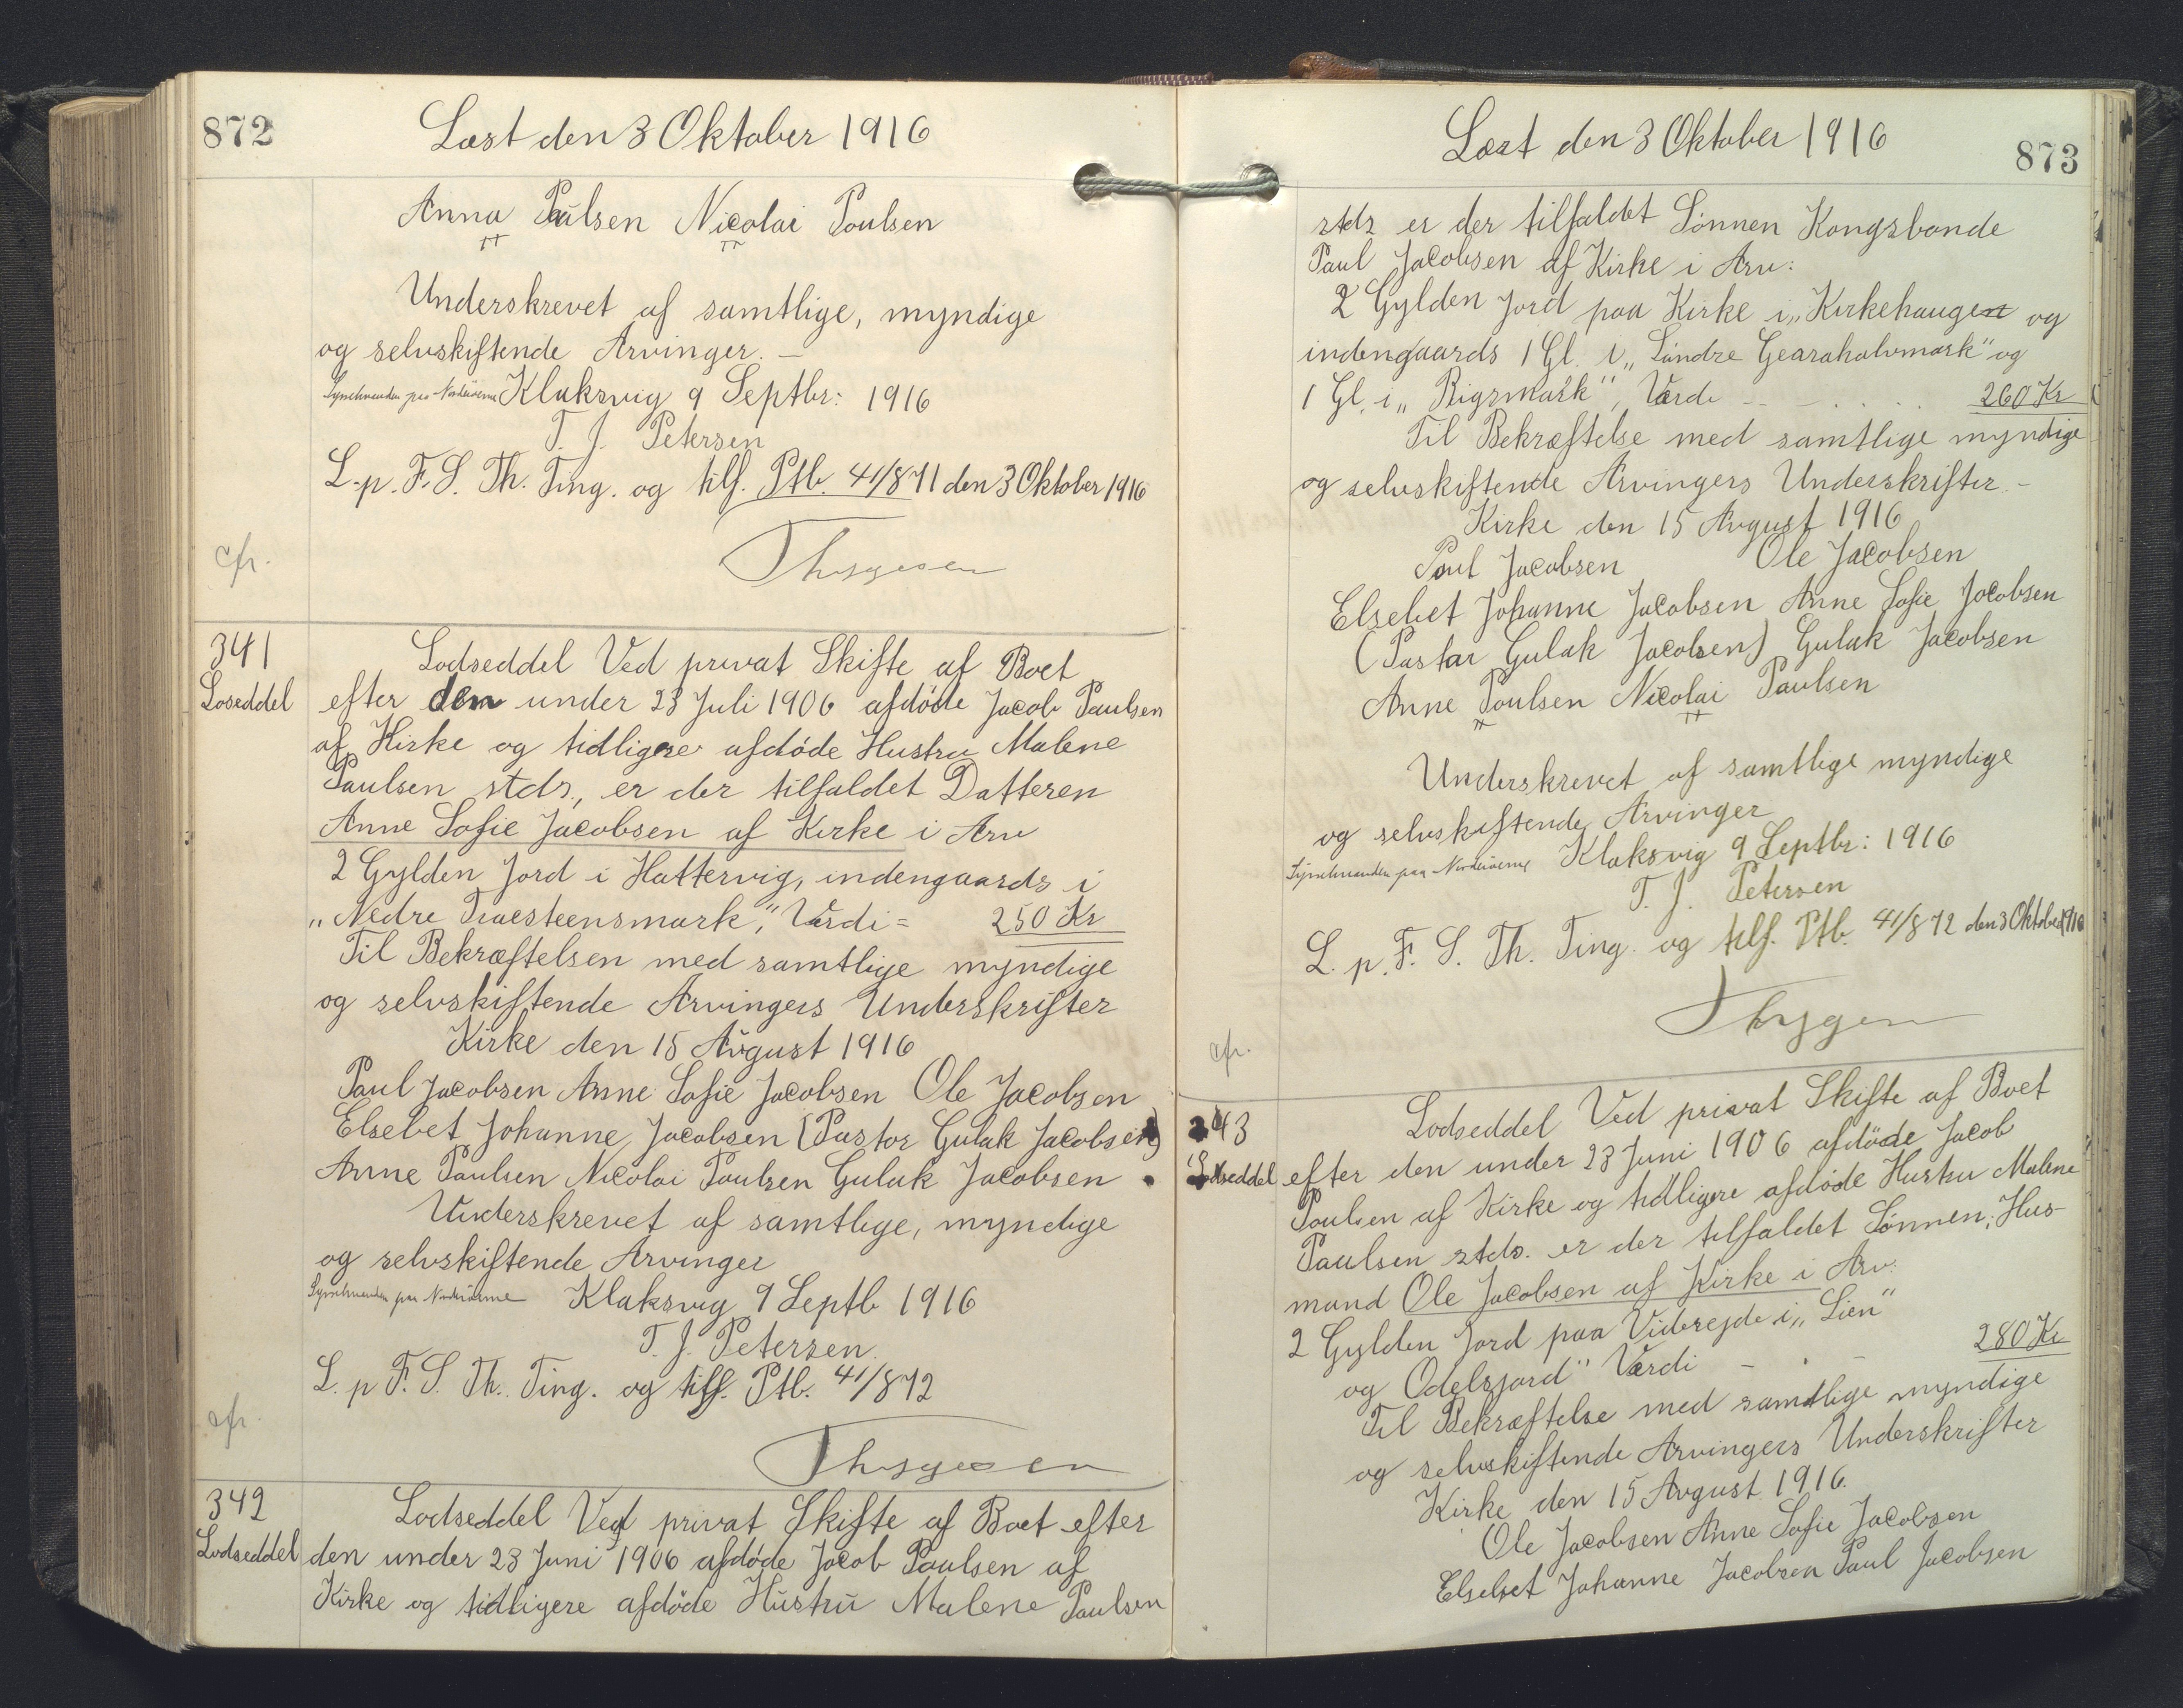 872
Læst den 3 Oktober 1916
Anna Paulsen Nicolai Poulsen
Underskrevet af samtlige, myndige
og selvskiftende Arvinger. –
Sysselmanden paa Norderøerne Klaksvig 9 Septbr: 1916
T. J. Petersen
L. p. F. S. Th. Ting. og tilf. Ptb. 41/871 den 3 Oktober 1916
Thrygesen
cfr.
341
Loseddel
Lodseddel Ved privat Skifte af Boet
efter den under 23 Juli 1906 afdöde Jacob Paulsen
af Kirke og tidligere afdöde Hustru Malene
Paulsen stds., er der tilfaldet Datteren
Anne Sofie Jacobsen af Kirke i Arv
2 Gylden Jord i Hattervig, indengaards i
"Nedre Traesteensmark," Værdi = 250 Kr
Til Bekræftelsen med samtlige myndige
og selvskiftende Arvingers Underskrifter
Kirke den 15 August 1916
Paul Jacobsen Anne Sofie Jacobsen Ole Jacobsen
Elsebet Johanne Jacobsen (Pastor Gulak Jacobsen)
Anne Paulsen Nicolai Poulsen Gulak Jacobsen
Underskrevet af samtlige, myndige
og selvskiftende Arvinger
Sysselmanden paa Norderøerne Klaksvig 9 Septb 1916
T. J. Petersen.
L. p F. S. Th. Ting. og tilf. Ptb. 41/872
cfr.
Thrygesen
342
Lodseddel
Lodseddel Ved privat Skifte af Boet efter
den under 23 Juni 1906 afdöde Jacob Paulsen af
Kirke og tidligere afdöde Hustru Malene Paulsen
Læst den 3 Oktober 1916
873
stds er der tilfaldet Sönnen Kongsbonde
Paul Jacobsen af Kirke i Arv:
2 Gylden Jord paa Kirke i "Kirkehaugen og
indengaards 1 Gl. i "Söndre Gearahalvmark" og
1 Gl. i "Rigsmark", Værdi 260 Kr
Til Bekræftelse med samtlige myndige
og selvskiftende Arvingers Underskrifter. –
Kirke den 15 August 1916
Poul Jacobsen Ole Jacobsen
Elsebet Johanne Jacobsen Anne Sofie Jacobsen
(Pastor Gulak Jacobsen) Gulak Jacobsen
Anne Poulsen Nicolai Paulsen
Underskrevet af samtlige myndige
og selvskiftende Arvinger
Sysselmanden paa Norderøerne Klaksvig 9 Septbr: 1916
T. J. Petersen
L. p. F. S. Th. Ting. og tilf. Ptb. 41/872 den 3 Oktober 1916
Thrygesen
cfr.
343
Lodseddel
Lodseddel Ved privat Skifte af Boet
efter den under 23 Juni 1906 afdöde Jacob
Poulsen af Kirke og tidligere afdöde Hustru Malene
Paulsen stds. er der tilfaldet Sönnen, Hus-
mand Ole Jacobsen af Kirke i Arv:
2 Gylden Jord paa Viderejde i "Lien"
og Odelsjord" Værdi – 280 Kr
Til Bekræftelse med samtlige myndige
og selvskiftende Arvingers Underskrifter
Kirke den 15 August 1916.
Ole Jacobsen Anne Sofie Jacobsen
Elsebet Johanne Jacobsen Paul Jacobsen